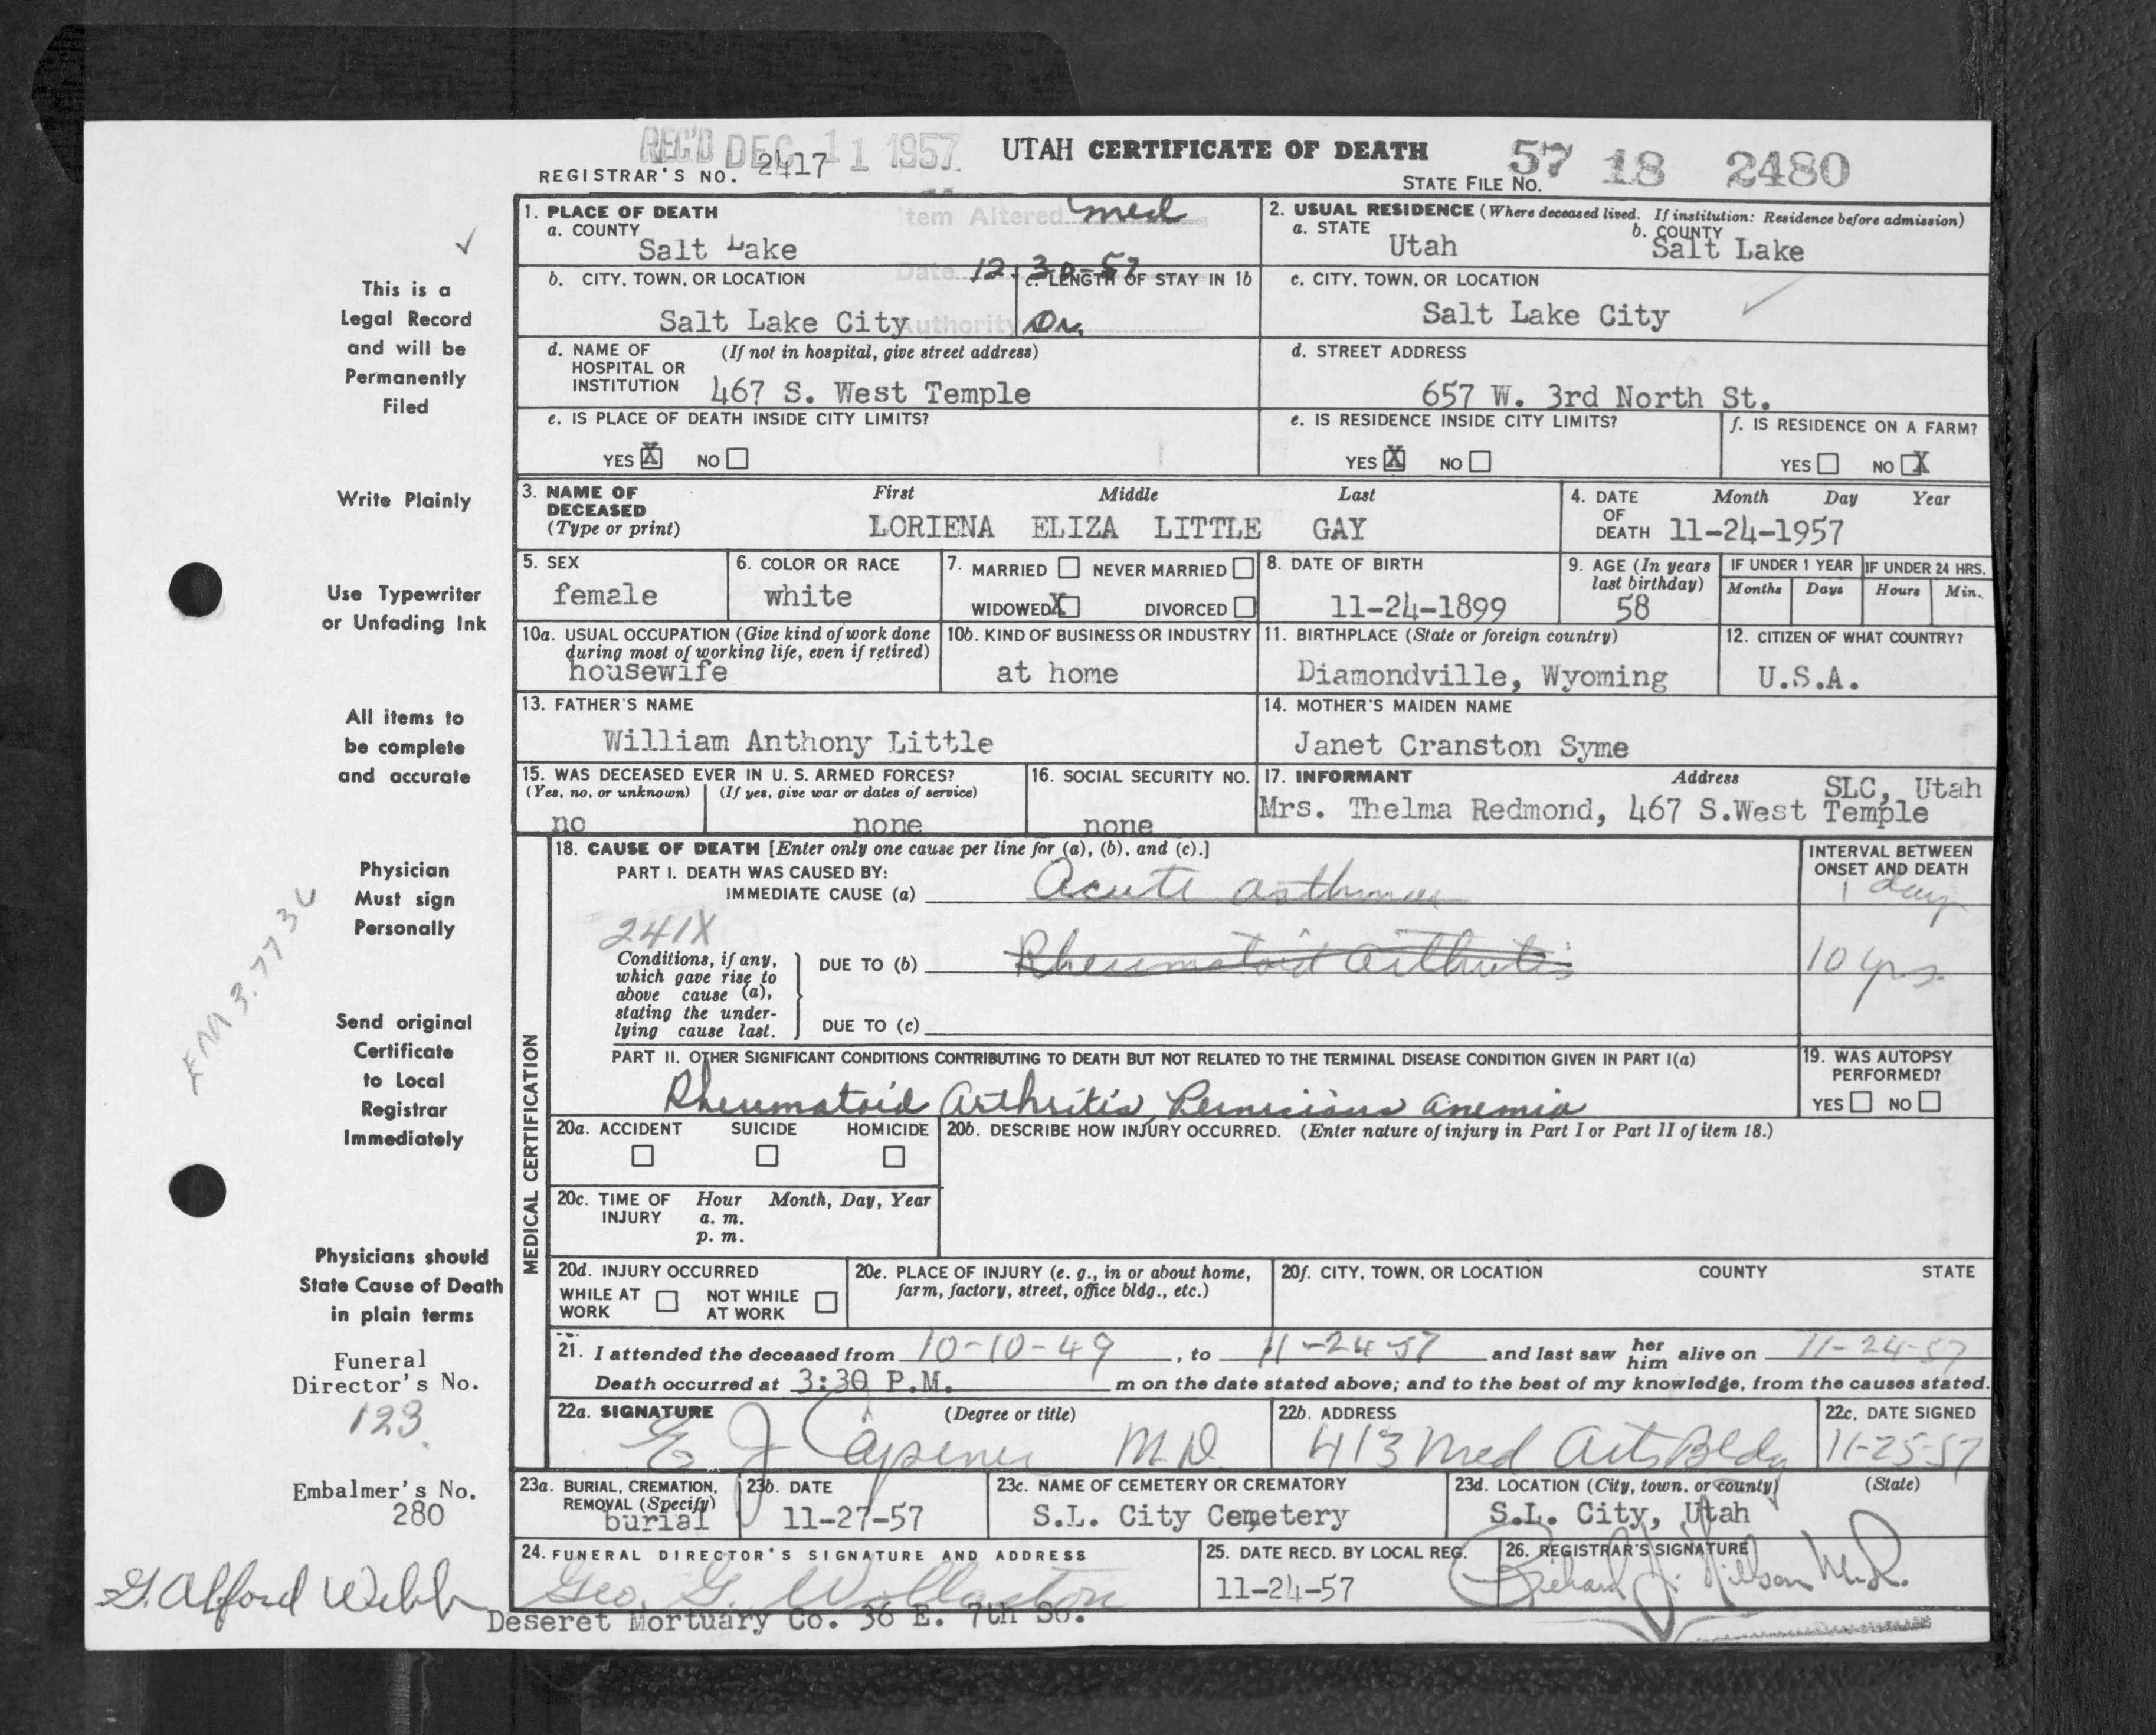 REC'D DEC 11 1957
UTAH CERTIFICATE OF DEATH
57 18 2480
REGISTRAR'S NO. 2417
STATE FILE NO.
1. PLACE OF DEATH
a. COUNTY
Salt Lake
Item Altered med
Date 12-30-57
Authority Dr.
2. USUAL RESIDENCE (Where deceased lived. If institution: Residence before admission)
a. STATE Utah
b. COUNTY Salt Lake
b. CITY, TOWN, OR LOCATION
Salt Lake City
c. LENGTH OF STAY IN 1b
c. CITY, TOWN, OR LOCATION
Salt Lake City
d. NAME OF HOSPITAL OR INSTITUTION (If not in hospital, give street address)
467 S. West Temple
d. STREET ADDRESS
657 W. 3rd North St.
e. IS PLACE OF DEATH INSIDE CITY LIMITS?
YES X NO
e. IS RESIDENCE INSIDE CITY LIMITS?
YES X NO
f. IS RESIDENCE ON A FARM?
YES NO X
3. NAME OF DECEASED (Type or print)
First Middle Last
LORIENA ELIZA LITTLE GAY
4. DATE OF DEATH
Month Day Year
11-24-1957
5. SEX
female
6. COLOR OR RACE
white
7. MARRIED NEVER MARRIED
WIDOWED X DIVORCED
8. DATE OF BIRTH
11-24-1899
9. AGE (In years last birthday)
58
IF UNDER 1 YEAR
Months Days
IF UNDER 24 HRS.
Hours Min.
10a. USUAL OCCUPATION (Give kind of work done during most of working life, even if retired)
housewife
10b. KIND OF BUSINESS OR INDUSTRY
at home
11. BIRTHPLACE (State or foreign country)
Diamondville, Wyoming
12. CITIZEN OF WHAT COUNTRY?
U.S.A.
13. FATHER'S NAME
William Anthony Little
14. MOTHER'S MAIDEN NAME
Janet Cranston Syme
15. WAS DECEASED EVER IN U. S. ARMED FORCES?
(Yes, no, or unknown) (If yes, give war or dates of service)
no none
16. SOCIAL SECURITY NO.
none
17. INFORMANT Address
SLC, Utah
Mrs. Thelma Redmond, 467 S.West Temple
MEDICAL CERTIFICATION
18. CAUSE OF DEATH [Enter only one cause per line for (a), (b), and (c).]
PART I. DEATH WAS CAUSED BY:
IMMEDIATE CAUSE (a) Acute asthma
INTERVAL BETWEEN ONSET AND DEATH
1 day
241X
Conditions, if any, which gave rise to above cause (a), stating the underlying cause last.
DUE TO (b) Rheumatoid Arthritis
10 yrs.
DUE TO (c)
PART II. OTHER SIGNIFICANT CONDITIONS CONTRIBUTING TO DEATH BUT NOT RELATED TO THE TERMINAL DISEASE CONDITION GIVEN IN PART I(a)
Rheumatoid Arthritis, Pernicious anemia
19. WAS AUTOPSY PERFORMED?
YES NO
20a. ACCIDENT SUICIDE HOMICIDE
20b. DESCRIBE HOW INJURY OCCURRED. (Enter nature of injury in Part I or Part II of item 18.)
20c. TIME OF INJURY
Hour Month, Day, Year
a. m.
p. m.
20d. INJURY OCCURRED
WHILE AT WORK NOT WHILE AT WORK
20e. PLACE OF INJURY (e. g., in or about home, farm, factory, street, office bldg., etc.)
20f. CITY, TOWN, OR LOCATION COUNTY STATE
21. I attended the deceased from 10-10-49, to 11-24-57 and last saw her him alive on 11-24-57
Death occurred at 3:30 P.M. m on the date stated above; and to the best of my knowledge, from the causes stated.
22a. SIGNATURE (Degree or title)
E J Capener M.D.
22b. ADDRESS
413 Med Arts Bldg
22c. DATE SIGNED
11-25-57
23a. BURIAL, CREMATION, REMOVAL (Specify)
burial
23b. DATE
11-27-57
23c. NAME OF CEMETERY OR CREMATORY
S.L. City Cemetery
23d. LOCATION (City, town, or county) (State)
S.L. City, Utah
24. FUNERAL DIRECTOR'S SIGNATURE AND ADDRESS
Geo. G. Wollaston
Deseret Mortuary Co. 36 E. 7th So.
25. DATE RECD. BY LOCAL REG.
11-24-57
26. REGISTRAR'S SIGNATURE
Richard J. Nilson M.D.
This is a
Legal Record
and will be
Permanently
Filed
Write Plainly
Use Typewriter
or Unfading Ink
All items to
be complete
and accurate
Physician
Must sign
Personally
Send original
Certificate
to Local
Registrar
Immediately
Physicians should
State Cause of Death
in plain terms
Funeral
Director's No.
123
Embalmer's No.
280
G. Alford Webb